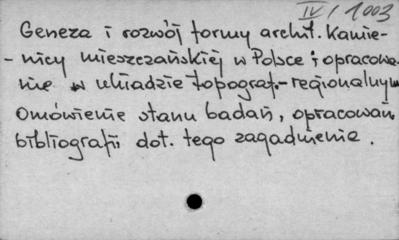 IV / 1003
Geneza i rozwój formy archit. Kamie-
- nicy mieszczańskiej w Polsce i opracowa-
nie w układzie topograf.-regionalnym
Omówienie stanu badań, opracowań,
bibliografii dot. tego zagadnienia.